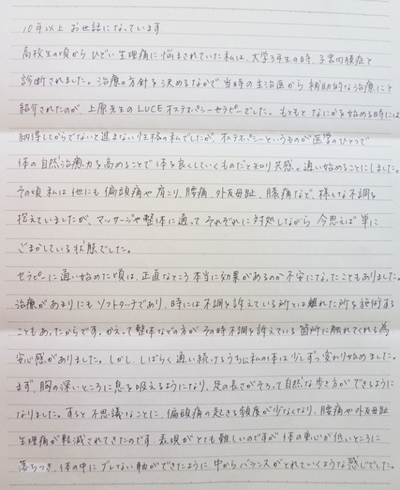 10年以上 お世話になっています。
高校生の頃から ひどい生理痛に悩まされていた私は、大学3年生の時、子宮内膜症と
診断されました。治療の方針を決めるなかで 当時の主治医から 補助的な治療にと
紹介されたのが、上原先生の LUCE オステオパシーセラピーでした。もともと なにかを始める時には
納得してからでないと進まない性格の私でしたが、オステオパシーというものが医学のひとつで
体の自然治癒力を高めることで 体を良くしていくものだと知り 共感し 通い始めることにしました。
その頃 私は 他にも 偏頭痛や 肩こり、腰痛、外反母趾、膝痛など、様々な不調を
抱えていましたが、マッサージや整体に通って それぞれに対処しながら、今思えば 単に
ごまかしている状態でした。
セラピーに通い始めた頃は、正直なところ 本当に効果があるのか不安になったこともありました。
治療があまりにもソフトタッチであり、時には 不調を訴えている所とは離れた所を施術する
こともあったからです。かえって整体などの方が その時 不調を訴えている 箇所に触れてくれる為
安心感がありました。しかし、しばらく通い続けるうちに私の体は少しずつ変わり始めました。
まず、胸の深いところに息を吸えるようになり、足の長さがそろって自然な歩き方ができるように
なりました。すると 不思議なことに、偏頭痛の起きる頻度が少なくなり、腰痛や外反母趾
生理痛が軽減されてきたのです。表現がとても難しいのですが 体の重心が低いところに
落ちつき、体の中に ブレない軸ができたように 中から バランスがとれていくような感じでした。